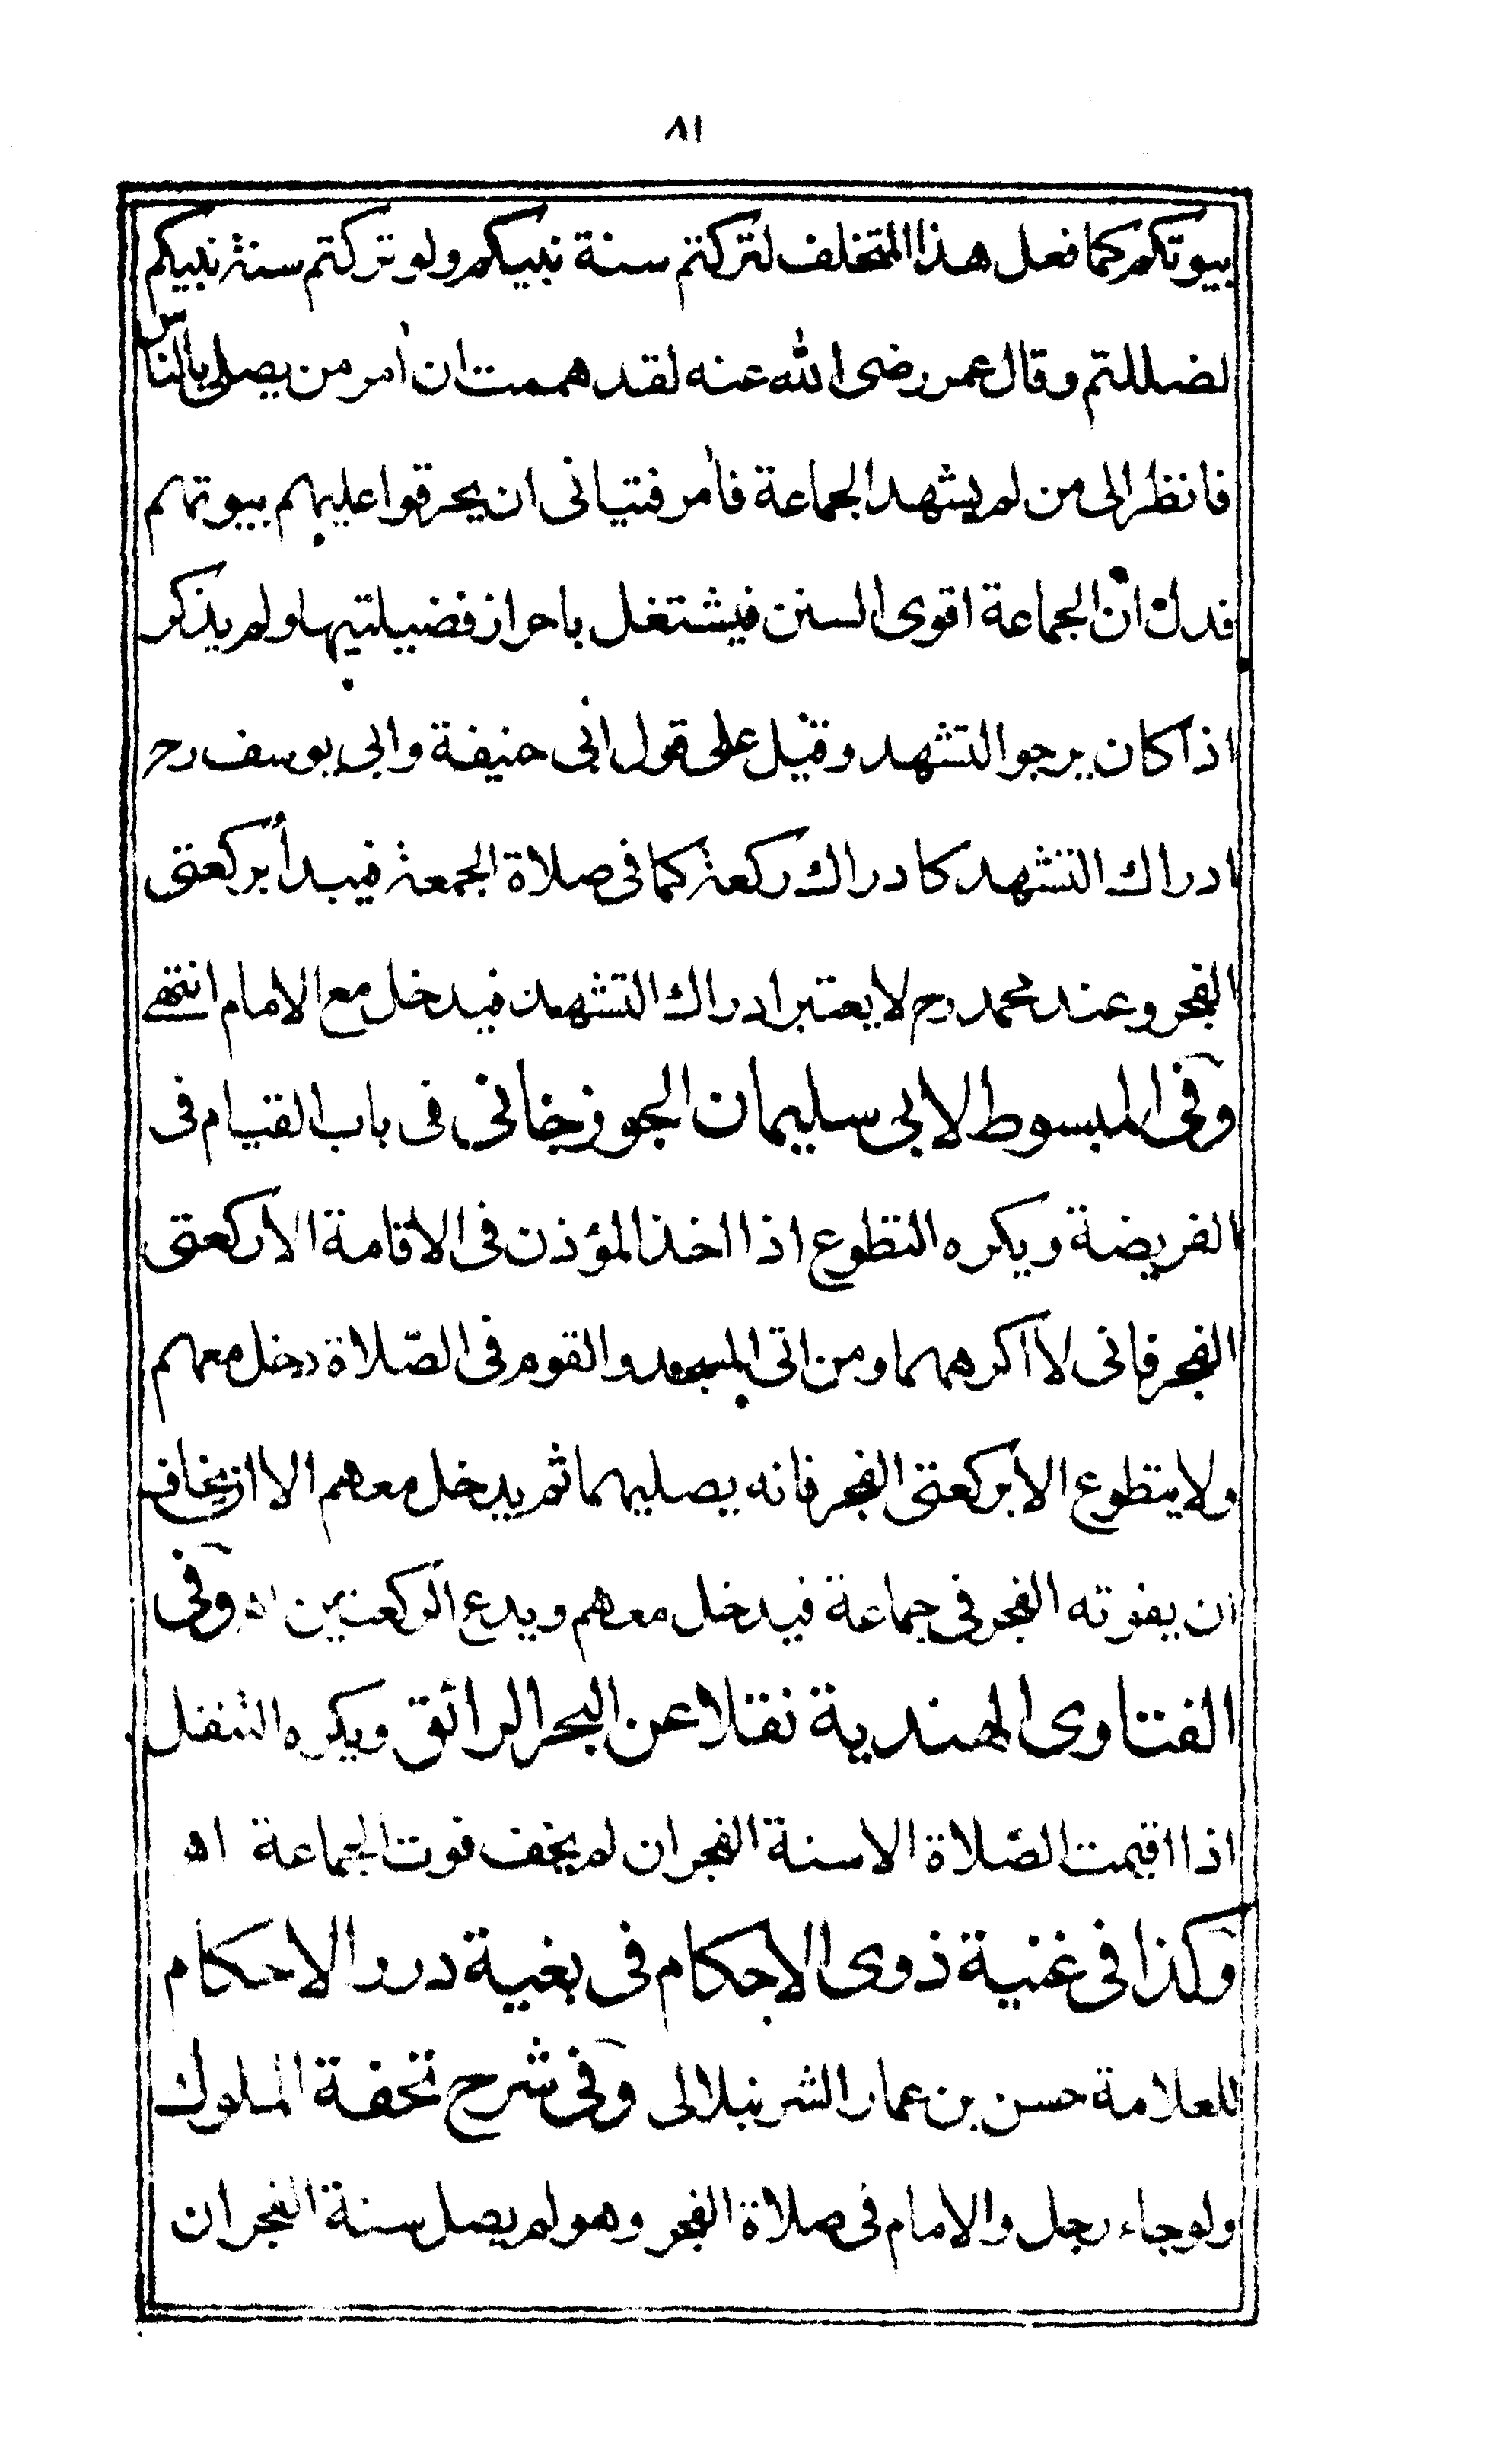 ٨١
بيوتكم كما فعل هذا المتخلف لتركتم سنة نبيكم ولو تركتم سنة نبيكم
لضللتم وقال عمر رضى الله عنه لقد هممت ان أمر من يصلى بالناس
فانظر الى من لم يشهد الجماعة فأمر فتيانى ان يحرقوا عليهم بيوتهم
فدل ان الجماعة اقوى السنن فيشتغل باحراز فضيلتيها ولم يذكر
اذا كان يرجو التشهد وقيل على قول ابى حنيفة وابى يوسف رح
ادراك التشهد كادراك ركعة كما فى صلاة الجمعة فيبدأ بركعتى
الفجر وعند محمد رح لا يعتبر ادراك التشهد فيدخل مع الامام انتهى
وفى المبسوط لابى سليمان الجوزجانى فى باب القيام فى
الفريضة ويكره التطوع اذا اخذ المؤذن فى الاقامة الا ركعتى
الفجر فانى لا اكرههما ومن اتى المسجد والقوم فى الصّلاة دخل معهم
ولا يتطوع الا بركعتى الفجر فانه يصليهما ثم يدخل معهم الا ان يخاف
ان يفوته الفجر فى جماعة فيدخل معهم ويدع الركعتين اه وفى
الفتاوى الهندية نقلا عن البحر الرائق ويكره التنفل
اذا اقيمت الصّلاة الا سنة الفجر ان لم يخف فوت الجماعة اه
وكذا فى غنية ذوى الاحكام فى بغية درر الاحكام
للعلامة حسن بن عمار الشرنبلالى وفى شرح تحفة الملوك
ولو جاء رجل والامام فى صلاة الفجر وهو لم يصل سنة الفجر ان